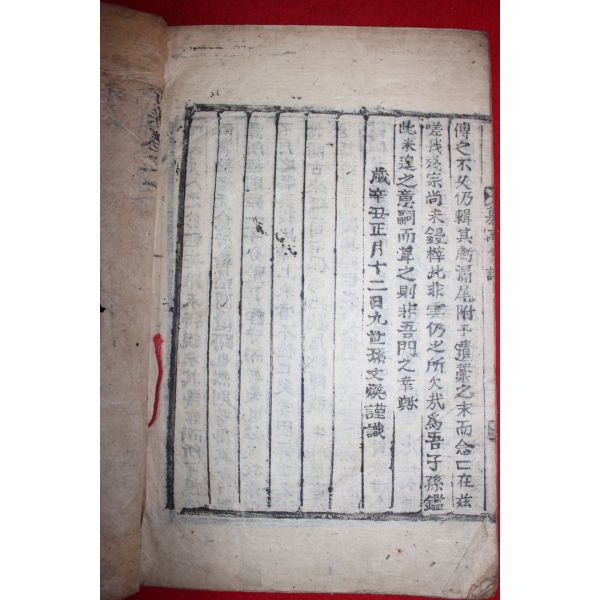 傳之不久仍輯其所漏尾附于遺藁之末而念亡在玆
嗟我殘宗尚未鋟梓此非雲仍之所欠哉爲吾子孫鑑
此未遑之意嗣而葺之則非吾門之幸歟
歲辛丑正月十二日九世孫文煥謹識